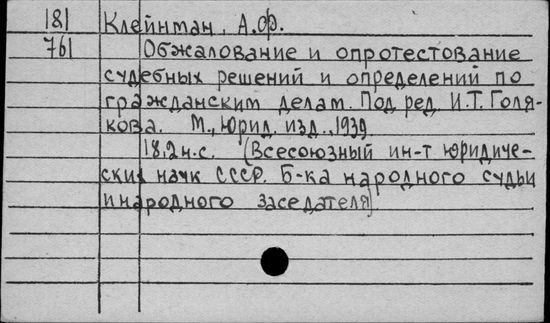 181 Клейнман, А.Ф.
761 Обжалование и опротестование
судебных решений и определений по
гражданским делам. Под ред. И.Т. Голя-
кова. М., Юрид. изд., 1939
18,2 н.с. (Всесоюзный ин-т юридиче-
ских наук СССР. Б-ка народного судьи
и народного заседателя)